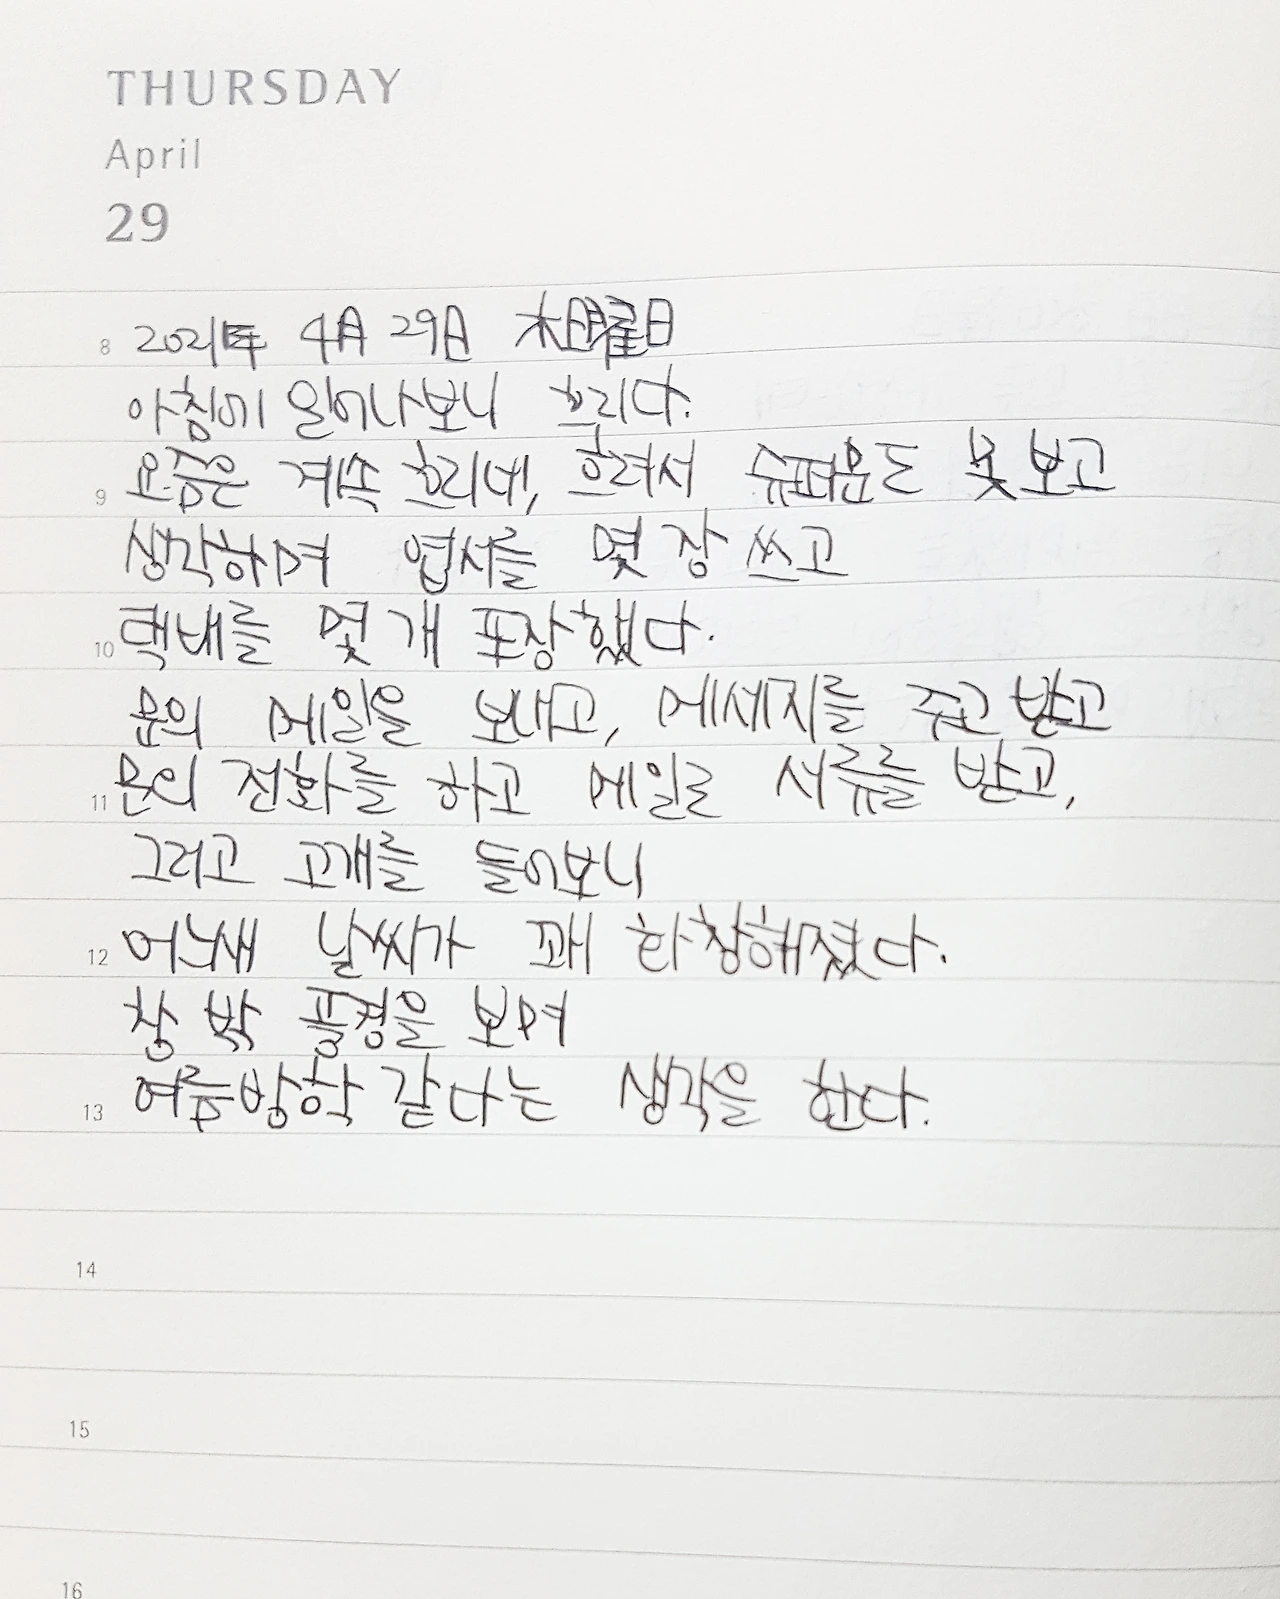 THURSDAY
April
29
8 2021年 4月 29日 木曜日
아침에 일어나보니 흐리다.
요즘은 계속 흐리네, 흐려서 슈퍼문도 못 보고
9
생각하며 엽서를 몇 장 쓰고
10 택배를 몇 개 포장했다.
문의 메일을 보내고, 메세지를 주고 받고
11 문의 전화를 하고 메일로 서류를 받고,
그리고 고개를 들어보니
12 어느새 날씨가 꽤 화창해졌다.
창 밖 풍경을 보며
13 여름방학 같다는 생각을 한다.
14
15
16